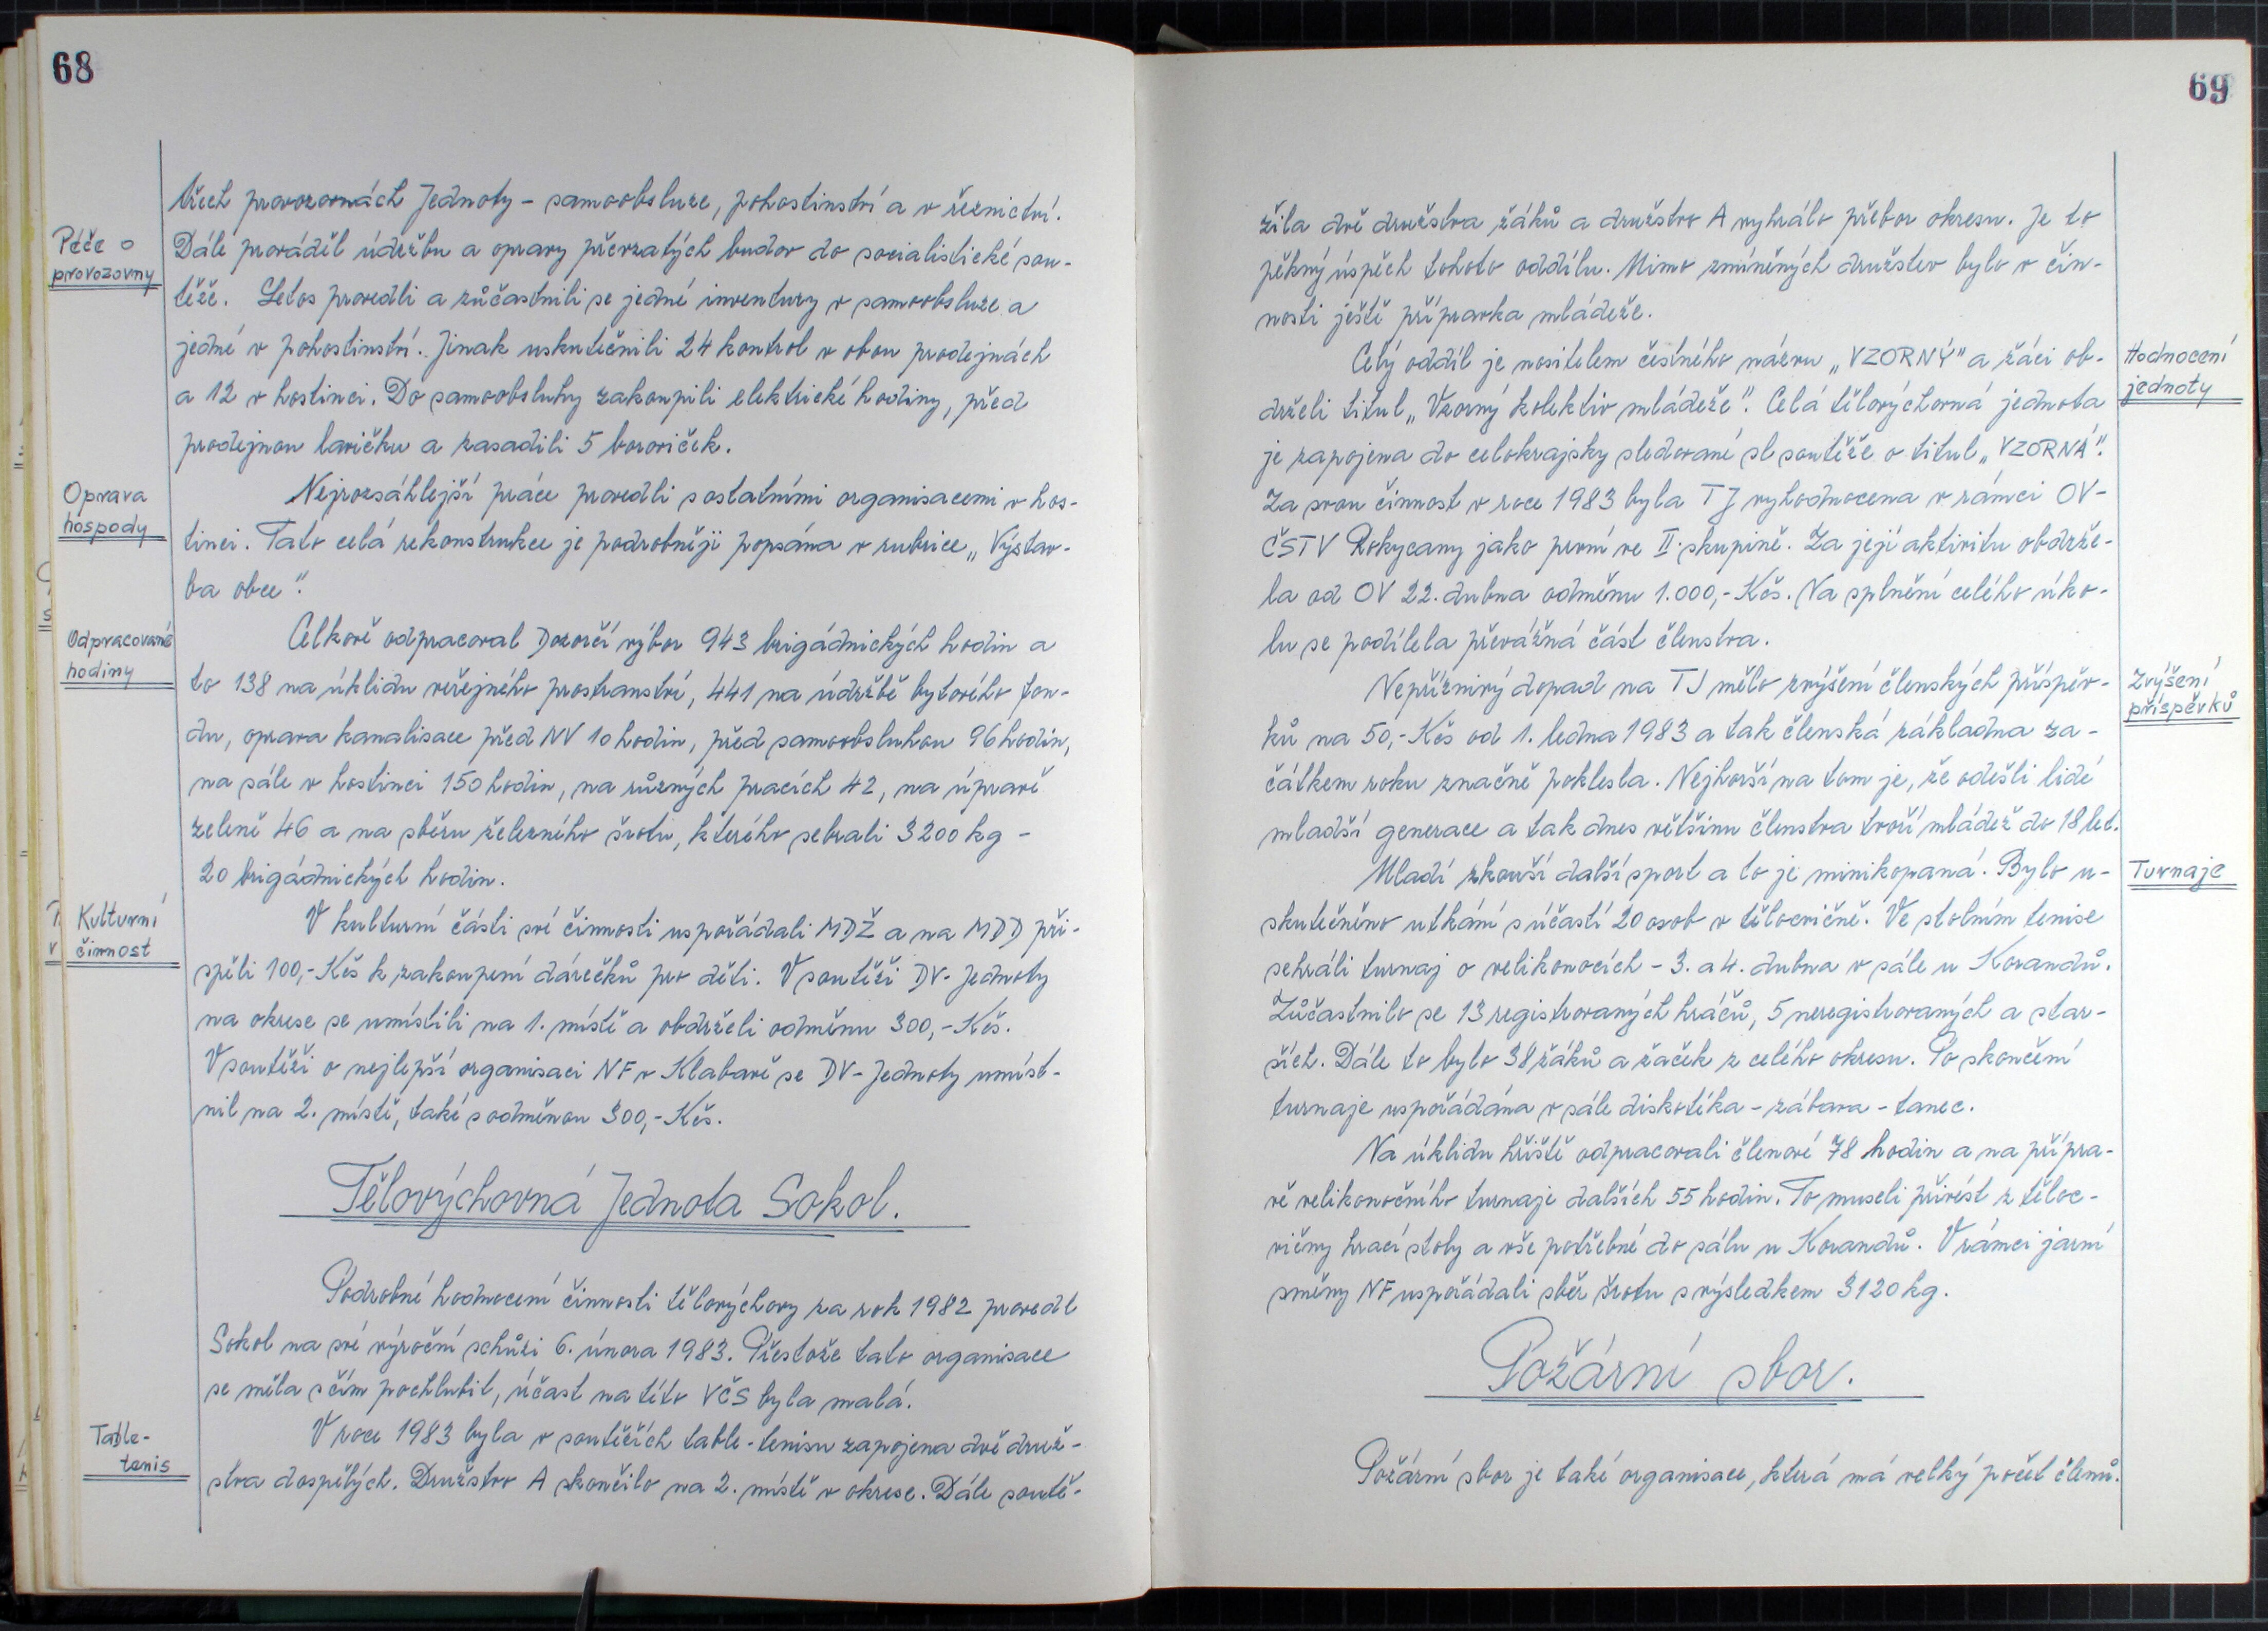 68
třech provozovnách Jednoty - samoobsluze, pohostinství a v řeznictví.
Péče o
provozovny
Dále prováděl údržbu a opravy převzatých budov do socialistické sou-
těže. Letos provedli a zůčastnili se jedné inventury v samoobsluze a
jedné v pohostinství. Jinak uskutečnili 24 kontrol v obou prodejnách
a 12 v hostinci. Do samoobsluhy zakoupili elektrické hodiny, před
prodejnou lavičku a zasadili 5 boroviček.
Oprava
hospody
Nejrozsáhlejší práce provedli s ostatními organisacemi v hos-
tinci. Tato celá rekonstrukce je podrobněji popsána v rubrice „Výstav-
ba obce".
Odpracované
hodiny
Celkově odpracoval Dozorčí výbor 943 brigádnických hodin a
to 138 na úklidu veřejného prostranství, 441 na údržbě bytového fon-
du, oprava kanalisace před NV 10 hodin, před samoobsluhou 96 hodin,
na sále v hostinci 150 hodin, na různých pracích 42, na úpravě
zeleně 46 a na sběru železného šrotu, kterého sebrali 3200 kg -
20 brigádnických hodin.
Kulturní
činnost
V kulturní části své činnosti uspořádali MDŽ a na MDD při-
spěli 100,- Kčs k zakoupení dárečků pro děti. V soutěži DV- Jednoty
na okrese se umístili na 1. místě a obdrželi odměnu 300,- Kčs.
V soutěži o nejlepší organisaci NF v Klabavě se DV- Jednoty umíst-
nil na 2. místě, také s odměnou 300,- Kčs.
Tělovýchovná Jednota Sokol.
Podrobné hodnocení činnosti tělovýchovy za rok 1982 provedl
Sokol na své výroční schůzi 6. února 1983. Přestože tato organisace
se měla s čím pochlubit, účast na této VČS byla malá.
Table-
tenis
V roce 1983 byla v soutěžích table-tenisu zapojena dvě druž-
stva dospělých. Družstvo A skončilo na 2. místě v okrese. Dále soutě-
69
žila dvě družstva žáků a družstvo A vyhrálo přebor okresu. Je to
pěkný úspěch tohoto oddílu. Mimo zmíněných družstev bylo v čin-
nosti ještě přípravka mládeže.
Hodnocení
jednoty
Celý oddíl je nositelem čestného názvu „VZORNÝ" a žáci ob-
drželi titul „Vzorný kolektiv mládeže". Celá tělovýchovná jednota
je zapojena do celokrajsky sledované sl soutěže o titul „VZORNÁ".
Za svou činnost v roce 1983 byla TJ vyhodnocena v rámci OV-
ČSTV Rokycany jako první ve II. skupině. Za její aktivitu obdrže-
la od OV 22. dubna odměnu 1.000,- Kčs. Na splnění celého úko-
lu se podílela převážná část členstva.
Zvýšení
příspěvků
Nepříznivý dopad na TJ mělo zvýšení členských příspěv-
ků na 50,- Kčs od 1. ledna 1983 a tak členská základna za-
čátkem roku značně poklesla. Nejhorší na tom je, že odešli lidé
mladší generace a tak dnes většinu členstva tvoří mládež do 18 let.
Turnaje
Mladí zkouší další sport a to je minikopaná. Bylo u-
skutečněno utkání s účastí 20 osob v tělocvičně. Ve stolním tenise
sehráli turnaj o velikonocích - 3. a 4. dubna v sále u Korandů.
Zůčastnilo se 13 registrovaných hráčů, 5 neregistrovaných a star-
ších. Dále to bylo 38 žáků a žaček z celého okresu. Po skončení
turnaje uspořádána v sále diskotéka - zábava - tanec.
Na úklidu hřiště odpracovali členové 78 hodin a na přípra-
vě velikonočního turnaje dalších 55 hodin. To museli přivést z těloc-
vičny hrací stoly a vše potřebné do sálu u Korandů. V rámci jarní
směny NF uspořádali sběr šrotu s výsledkem 3120 kg.
Požární sbor.
Požární sbor je také organisace, která má velký počet členů.